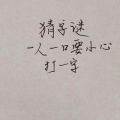 猜字谜
一人一口要小心
打一字